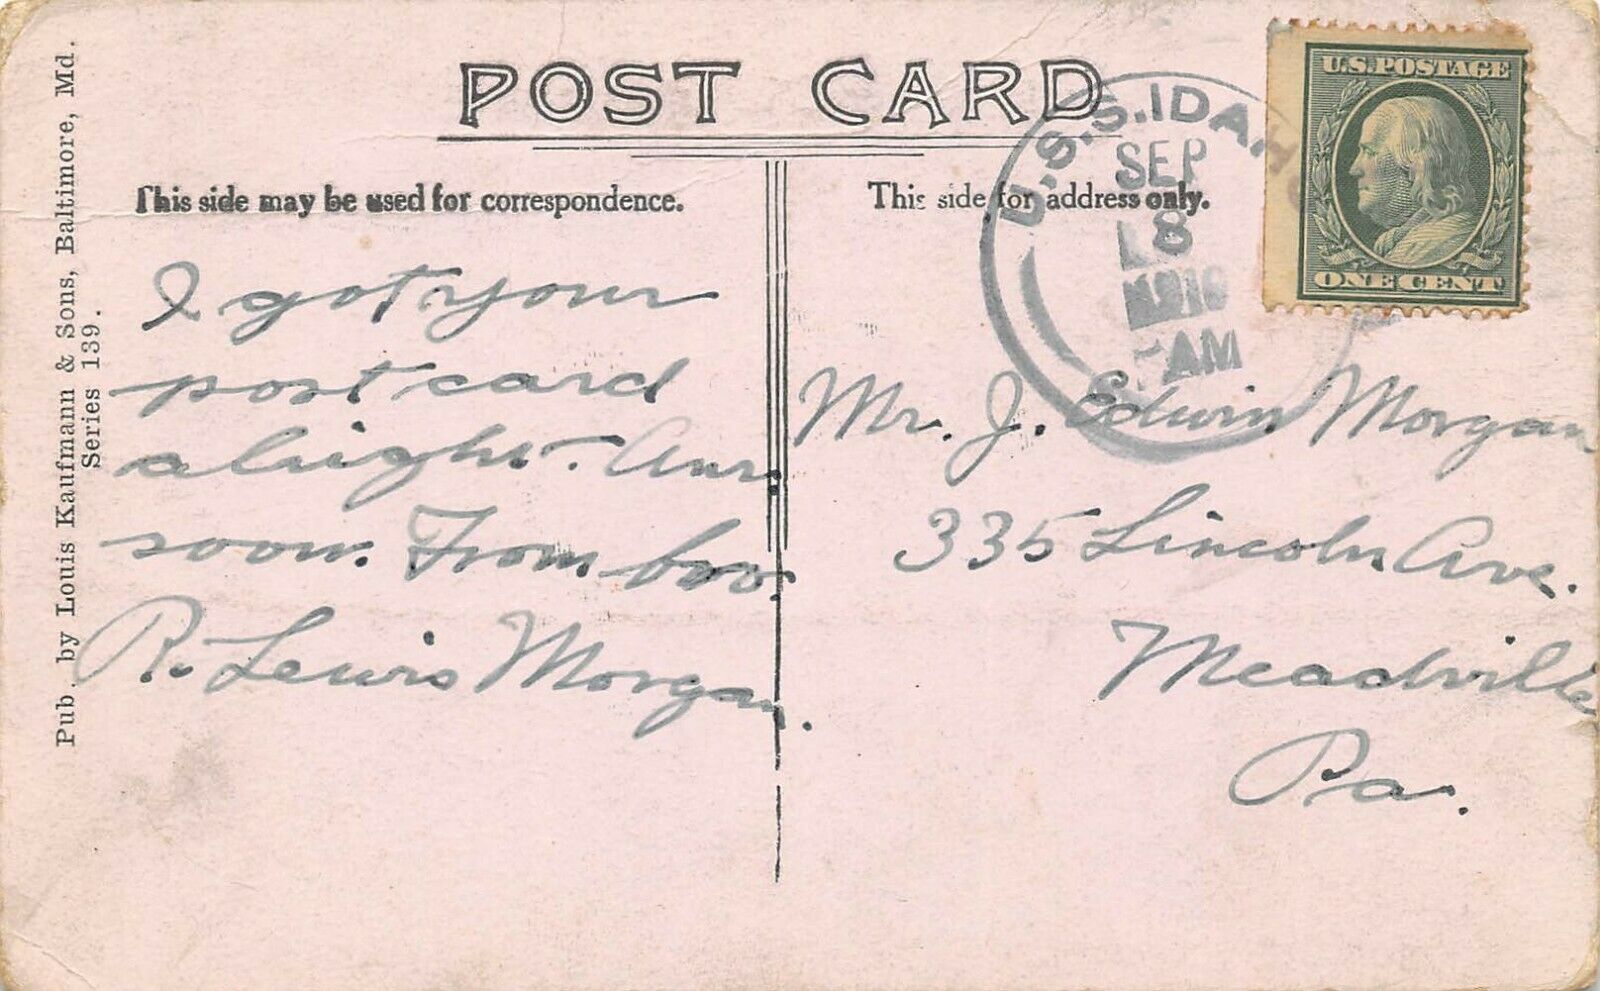 POST CARD
This side may be used for correspondence.
This side for address only.
Pub. by Louis Kaufmann & Sons, Baltimore, Md.
Series 139.
U.S.S. IDAHO
SEP
8
1910
AM
U.S. POSTAGE
ONE CENT
I got your
post card
alright. Ans.
soon. From bro.
R. Lewis Morgan.
Mr. J. Edwin Morgan
335 Lincoln Ave.
Meadville
Pa.